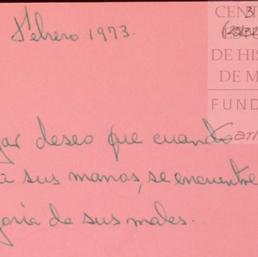 Febrero 1973.
CENT
3
DE HIS
DE M
FUND
gar deseo que cuando
a sus manos, se encuentre
oria de sus males.